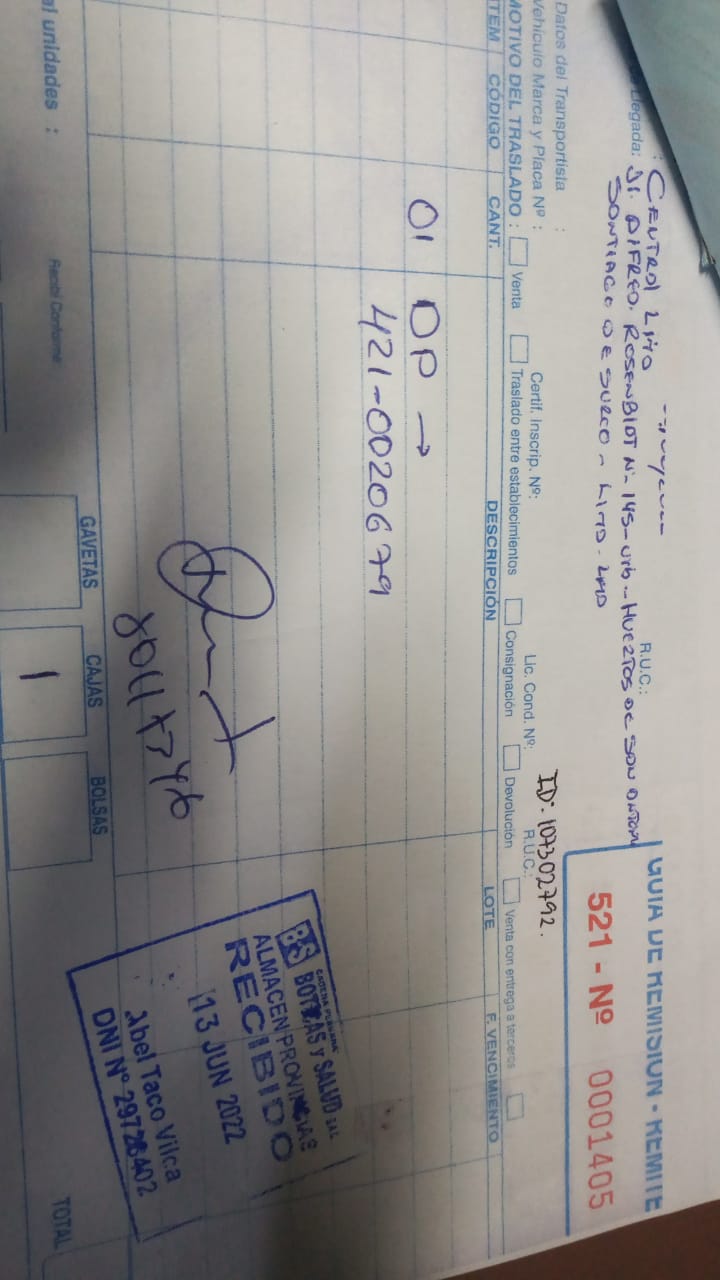 GUIA DE REMISION - REMITE
521 - Nº 0001405
: CENTROL LIMO
Llegada: Jr. ALFREO. ROSENBLOT Nº 145 - Urb - HUERTOS DE SON ONTON
SONTIAGO DE SURCO - LIMO - LMO
R.U.C.:
ID: 107302792.
Datos del Transportista :
R.U.C.:
Vehículo Marca y Placa Nº :
Certif. Inscrip. Nº:
Lic. Cond. Nº:
MOTIVO DEL TRASLADO : Venta Traslado entre establecimientos Consignación Devolución Venta con entrega a terceros
ITEM CÓDIGO CANT. DESCRIPCIÓN LOTE F. VENCIMIENTO
01 OP →
421-0020679
CADENA PERUANA
BS BOTICAS Y SALUD SAC
ALMACEN PROVINCIAS
RECIBIDO
13 JUN 2022
Abel Taco Vilca
DNI Nº 29726402
GAVETAS CAJAS BOLSAS TOTAL
al unidades :
1
Recibí Conforme